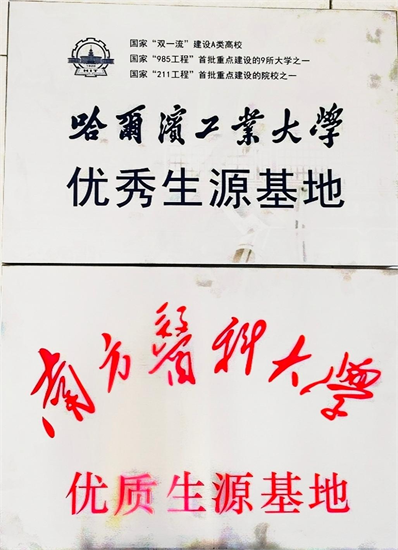 国家“双一流”建设A类高校
国家“985工程”首批重点建设的9所大学之一
国家“211工程”首批重点建设的院校之一
哈爾濱工業大學
优秀生源基地
南方醫科大學
优质生源基地